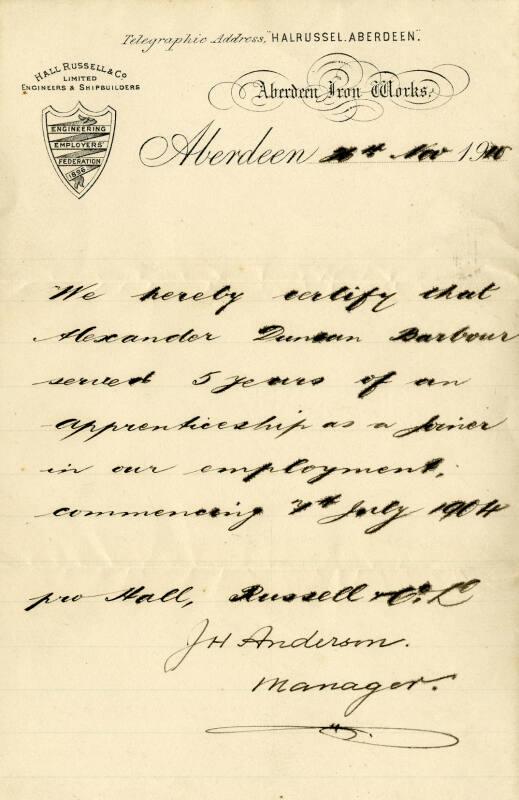 Telegraphic Address, "HALRUSSEL. ABERDEEN".
HALL RUSSELL & Co
LIMITED
ENGINEERS & SHIPBUILDERS
Aberdeen Iron Works.
ENGINEERING
EMPLOYERS'
FEDERATION
1896
Aberdeen Nov 1910
We hereby certify that
Alexander Duncan Barbour
served 5 years of an
apprenticeship as a Joiner
in our employment,
commencing 7th July 1904
pro Hall, Russell & Co. Ld
JH Anderson.
Manager.